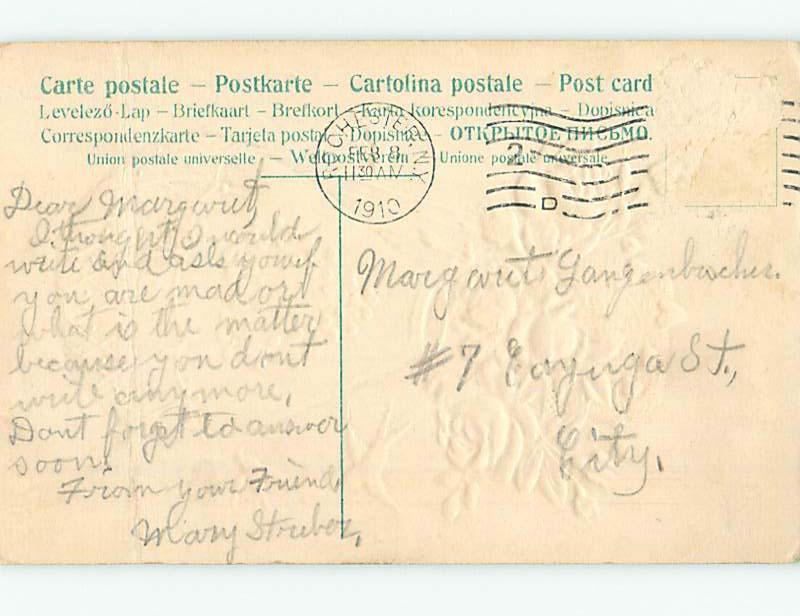 Carte postale – Postkarte – Cartolina postale – Post card
Levelező-Lap – Briefkaart – Brefkort – Karta korespondencyjna – Dopisnica
Correspondenzkarte – Tarjeta postal – Dopisnice – ОТКРЫТОЕ ПИСЬМО.
Union postale universelle. – Weltpostverein – Unione postale universale.
ROCHESTER, N.Y.
FEB 8
11 30 AM
1910
2
D
Dear Margaret,
I thought I would
write and ask you if
you are mad or
what is the matter
because you dont
write anymore,
Dont forget to answer
soon.
From your Friend
Mary Struber,
Margaret Langenbacher.
#7 Cayuga St.,
City.